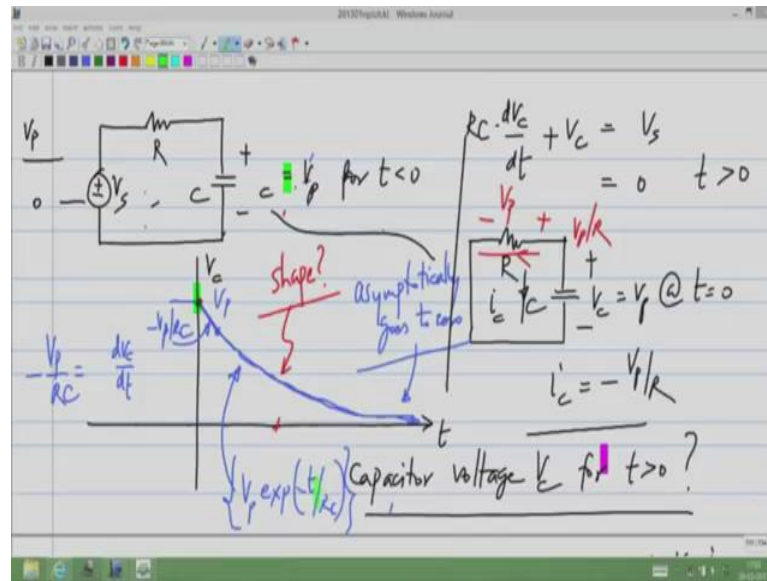 201301npickkl Windows Journal
V_p
0
R
+
V_s
C
-
c = V_p for t<0
RC · dV_c/dt + V_c = V_s
= 0 t>0
- V_p +
V_p/R
R
i_c
C
+
-
V_c = V_p @ t=0
i_c = - V_p/R
V_c
V_p
shape?
asymptotically
goes to zero
-V_p/RC
- V_p/RC = dV_c/dt
t
{V_p exp(-t/RC)}
Capacitor voltage V_c for t>0 ?